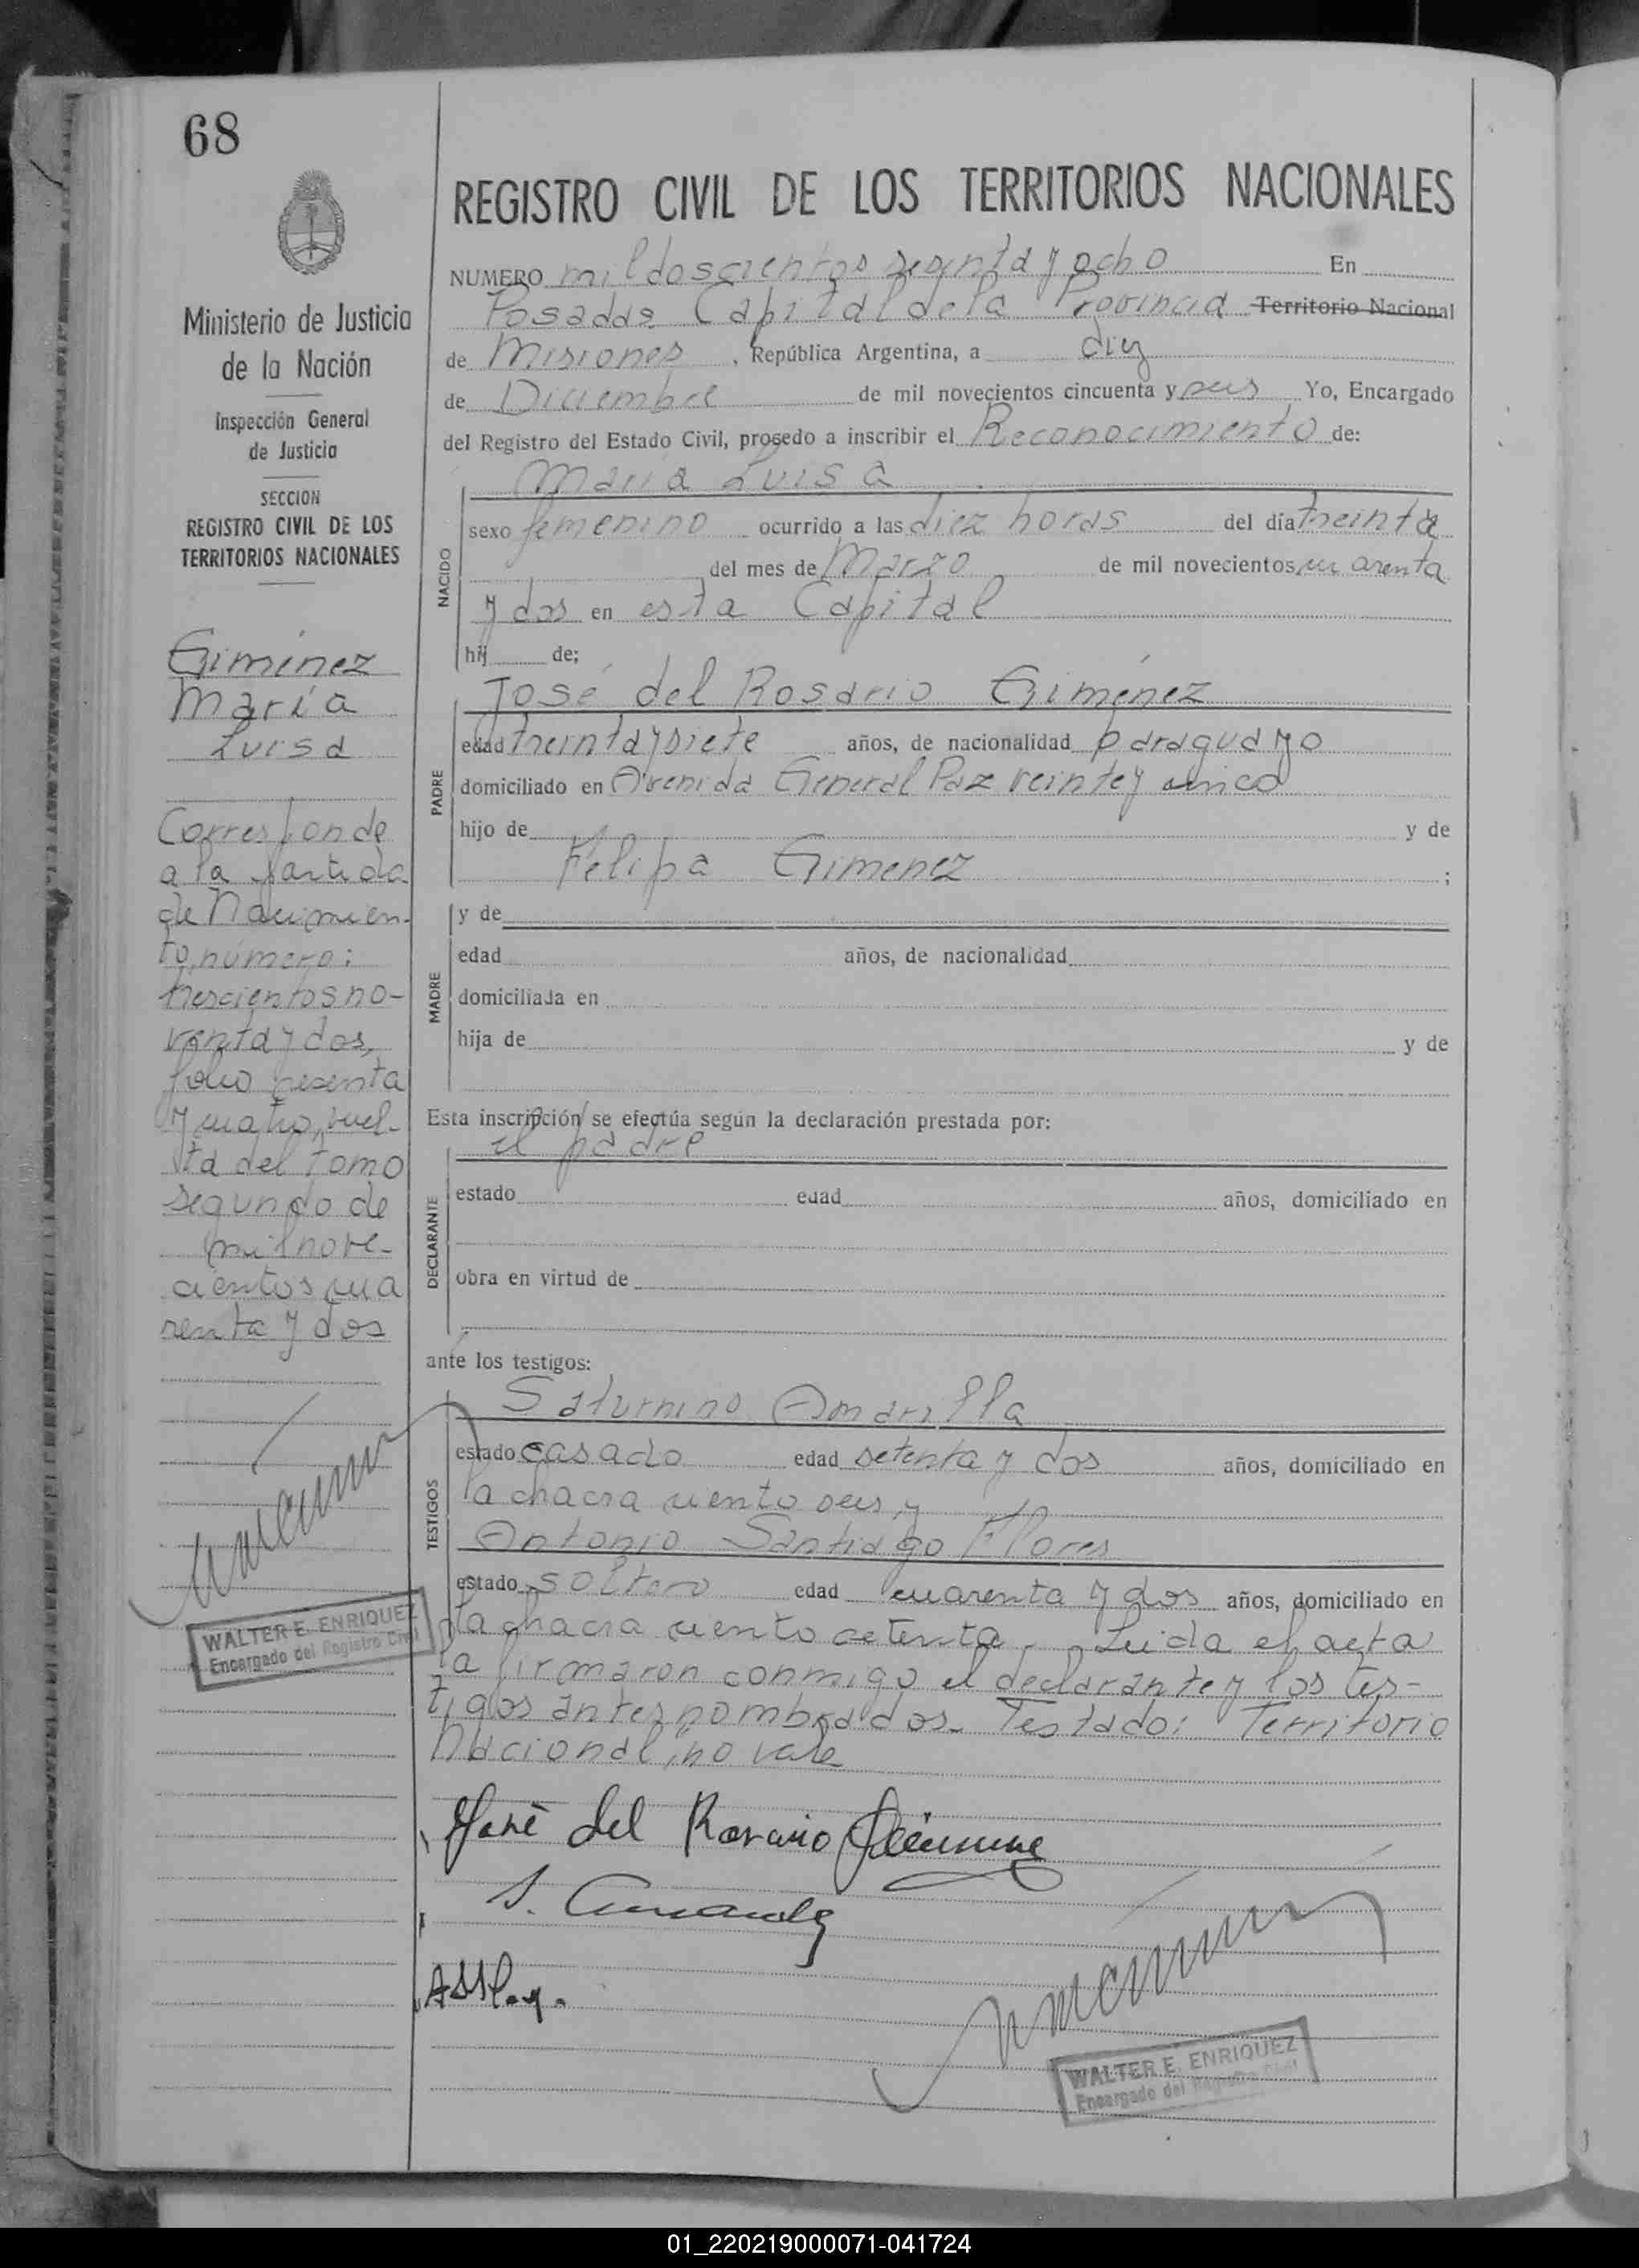 68
Ministerio de Justicia
de la Nación
Inspección General
de Justicia
SECCION
REGISTRO CIVIL DE LOS
TERRITORIOS NACIONALES
Giménez
María
Luisa
Corresponde
a la partida
de Nacimien-
to número:
trescientos no-
venta y dos,
folio sesenta
y cuatro, vuel-
ta del tomo
segundo de
mil nove-
cientos cua
renta y dos
WALTER E. ENRIQUEZ
Encargado del Registro Civil
REGISTRO CIVIL DE LOS TERRITORIOS NACIONALES
NUMERO mil doscientos sesenta y ocho En
Posadas Capital de la Provincia Territorio Nacional
de Misiones, República Argentina, a diez
de Diciembre de mil novecientos cincuenta y seis Yo, Encargado
del Registro del Estado Civil, prosedo a inscribir el Reconocimiento de:
NACIDO
María Luisa
sexo femenino ocurrido a las diez horas del día treinta
del mes de Marzo de mil novecientos cuarenta
y dos en esta Capital
hij de;
PADRE
José del Rosario Giménez
edad treinta y siete años, de nacionalidad paraguayo
domiciliado en Avenida General Paz veinte y cinco
hijo de y de
Felipa Gimenez ;
MADRE
y de
edad años, de nacionalidad
domiciliada en
hija de y de
Esta inscripción se efectúa según la declaración prestada por:
DECLARANTE
el padre
estado edad años, domiciliado en
obra en virtud de
ante los testigos:
TESTIGOS
Saturnino Amarilla
estado casado edad setenta y dos años, domiciliado en
la chacra ciento seis y
Antonio Santiago Flores
estado soltero edad cuarenta y dos años, domiciliado en
la chacra ciento setenta. Leida el acta
la firmaron conmigo el declarante y los tes-
tigos antes nombrados. Testado: Territorio
Nacional, no vale
José del Rosario Gimenez
WALTER E. ENRIQUEZ
Encargado del Registro Civil
01_220219000071-041724